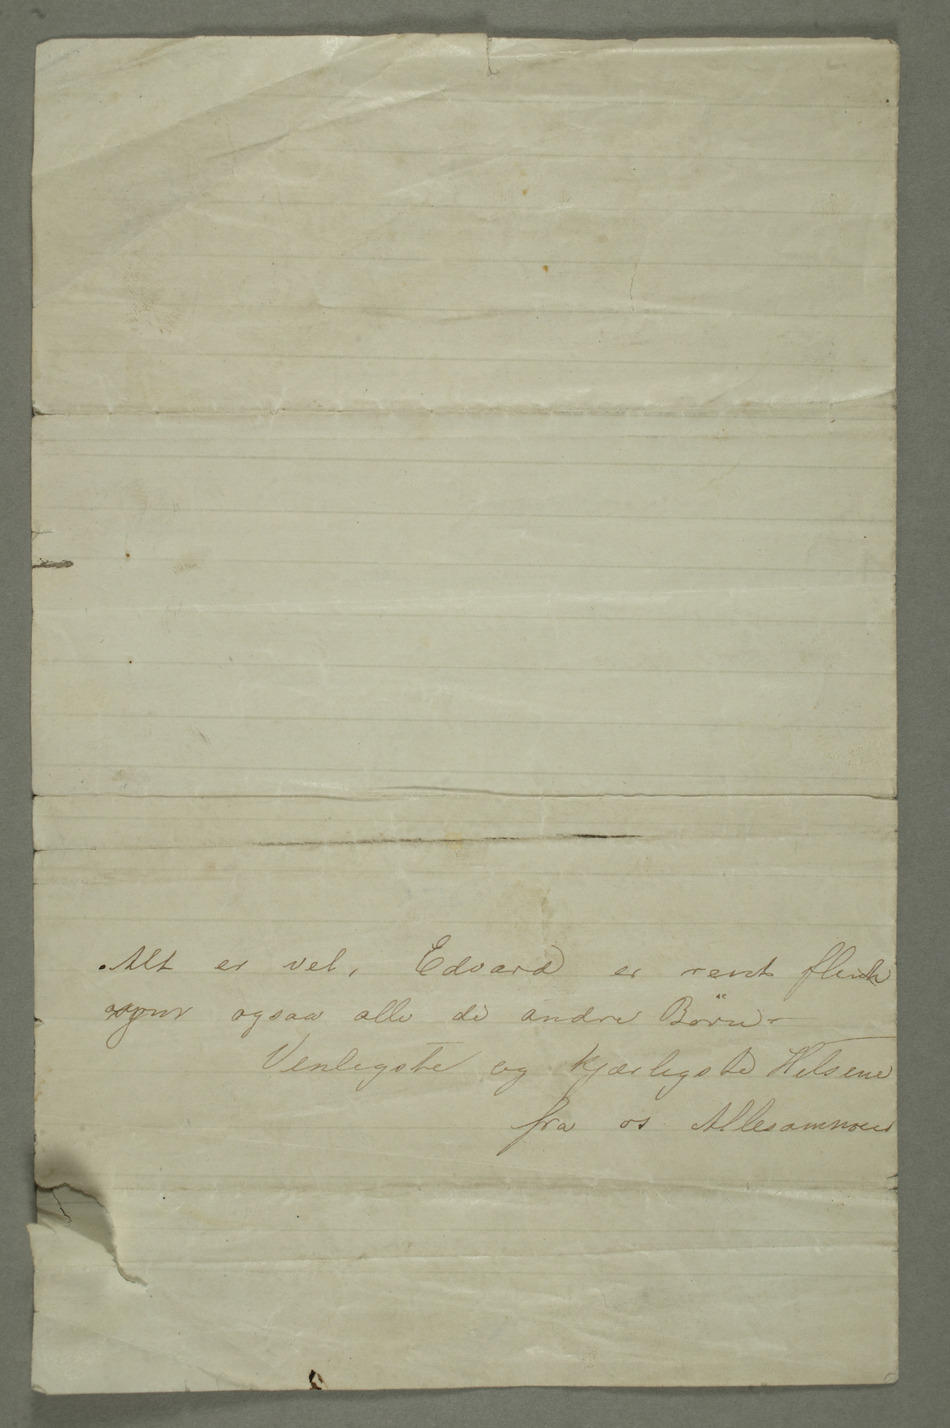 Alt er vel, Edvard er rent flink
ogsaa alle de andre Børn
Venligste og kjærligste Hilsener
fra os Allesammen